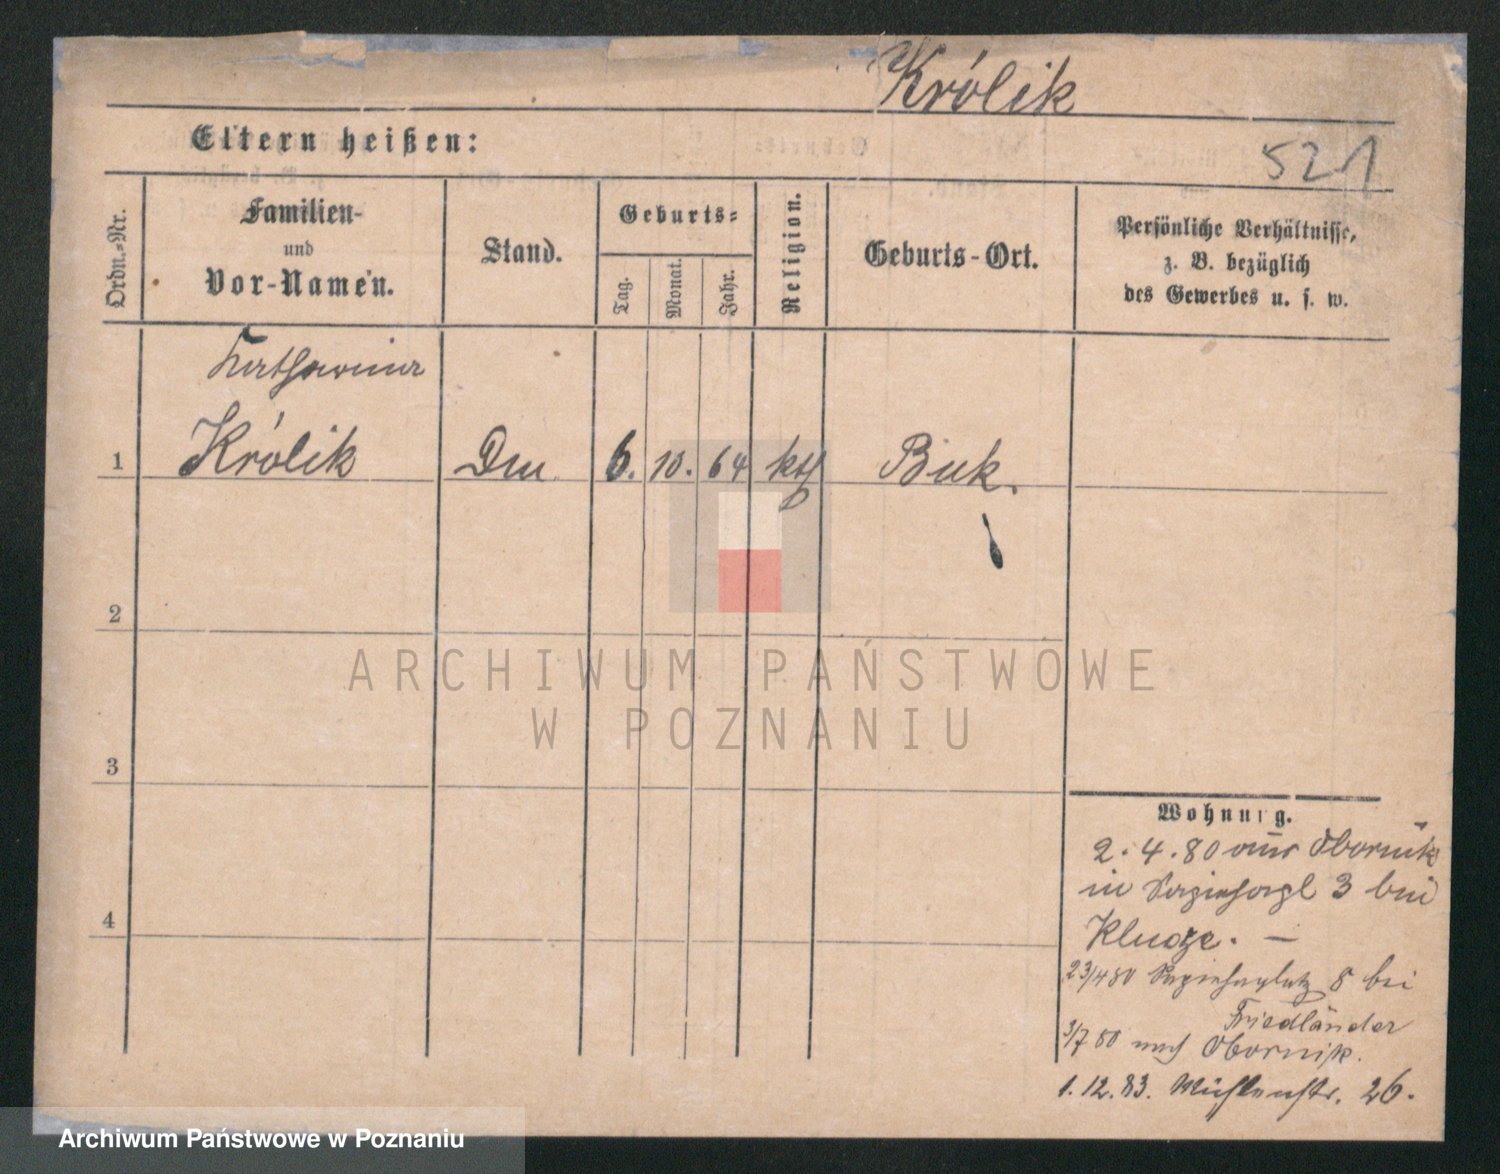 Królik
Eltern heißen:
521
Ordn.-Nr.
Familien-
und
Vor-Namen.
Stand.
Geburts-
Tag.
Monat.
Jahr.
Religion.
Geburts-Ort.
Persönliche Verhältnisse,
z. B. bezüglich
des Gewerbes u. s. w.
Katharina
1 Królik Dm 6. 10. 64 kth Buk.
2
ARCHIWUM PAŃSTWOWE
W POZNANIU
3
Wohnung.
2. 4. 80 aus Obornik
in 3 bei
Kluge. —
4
23/4 80 8 bei
Friedländer
3/7 80 nach Obornik.
1. 12. 83. Mühlenstr. 26.
Archiwum Państwowe w Poznaniu